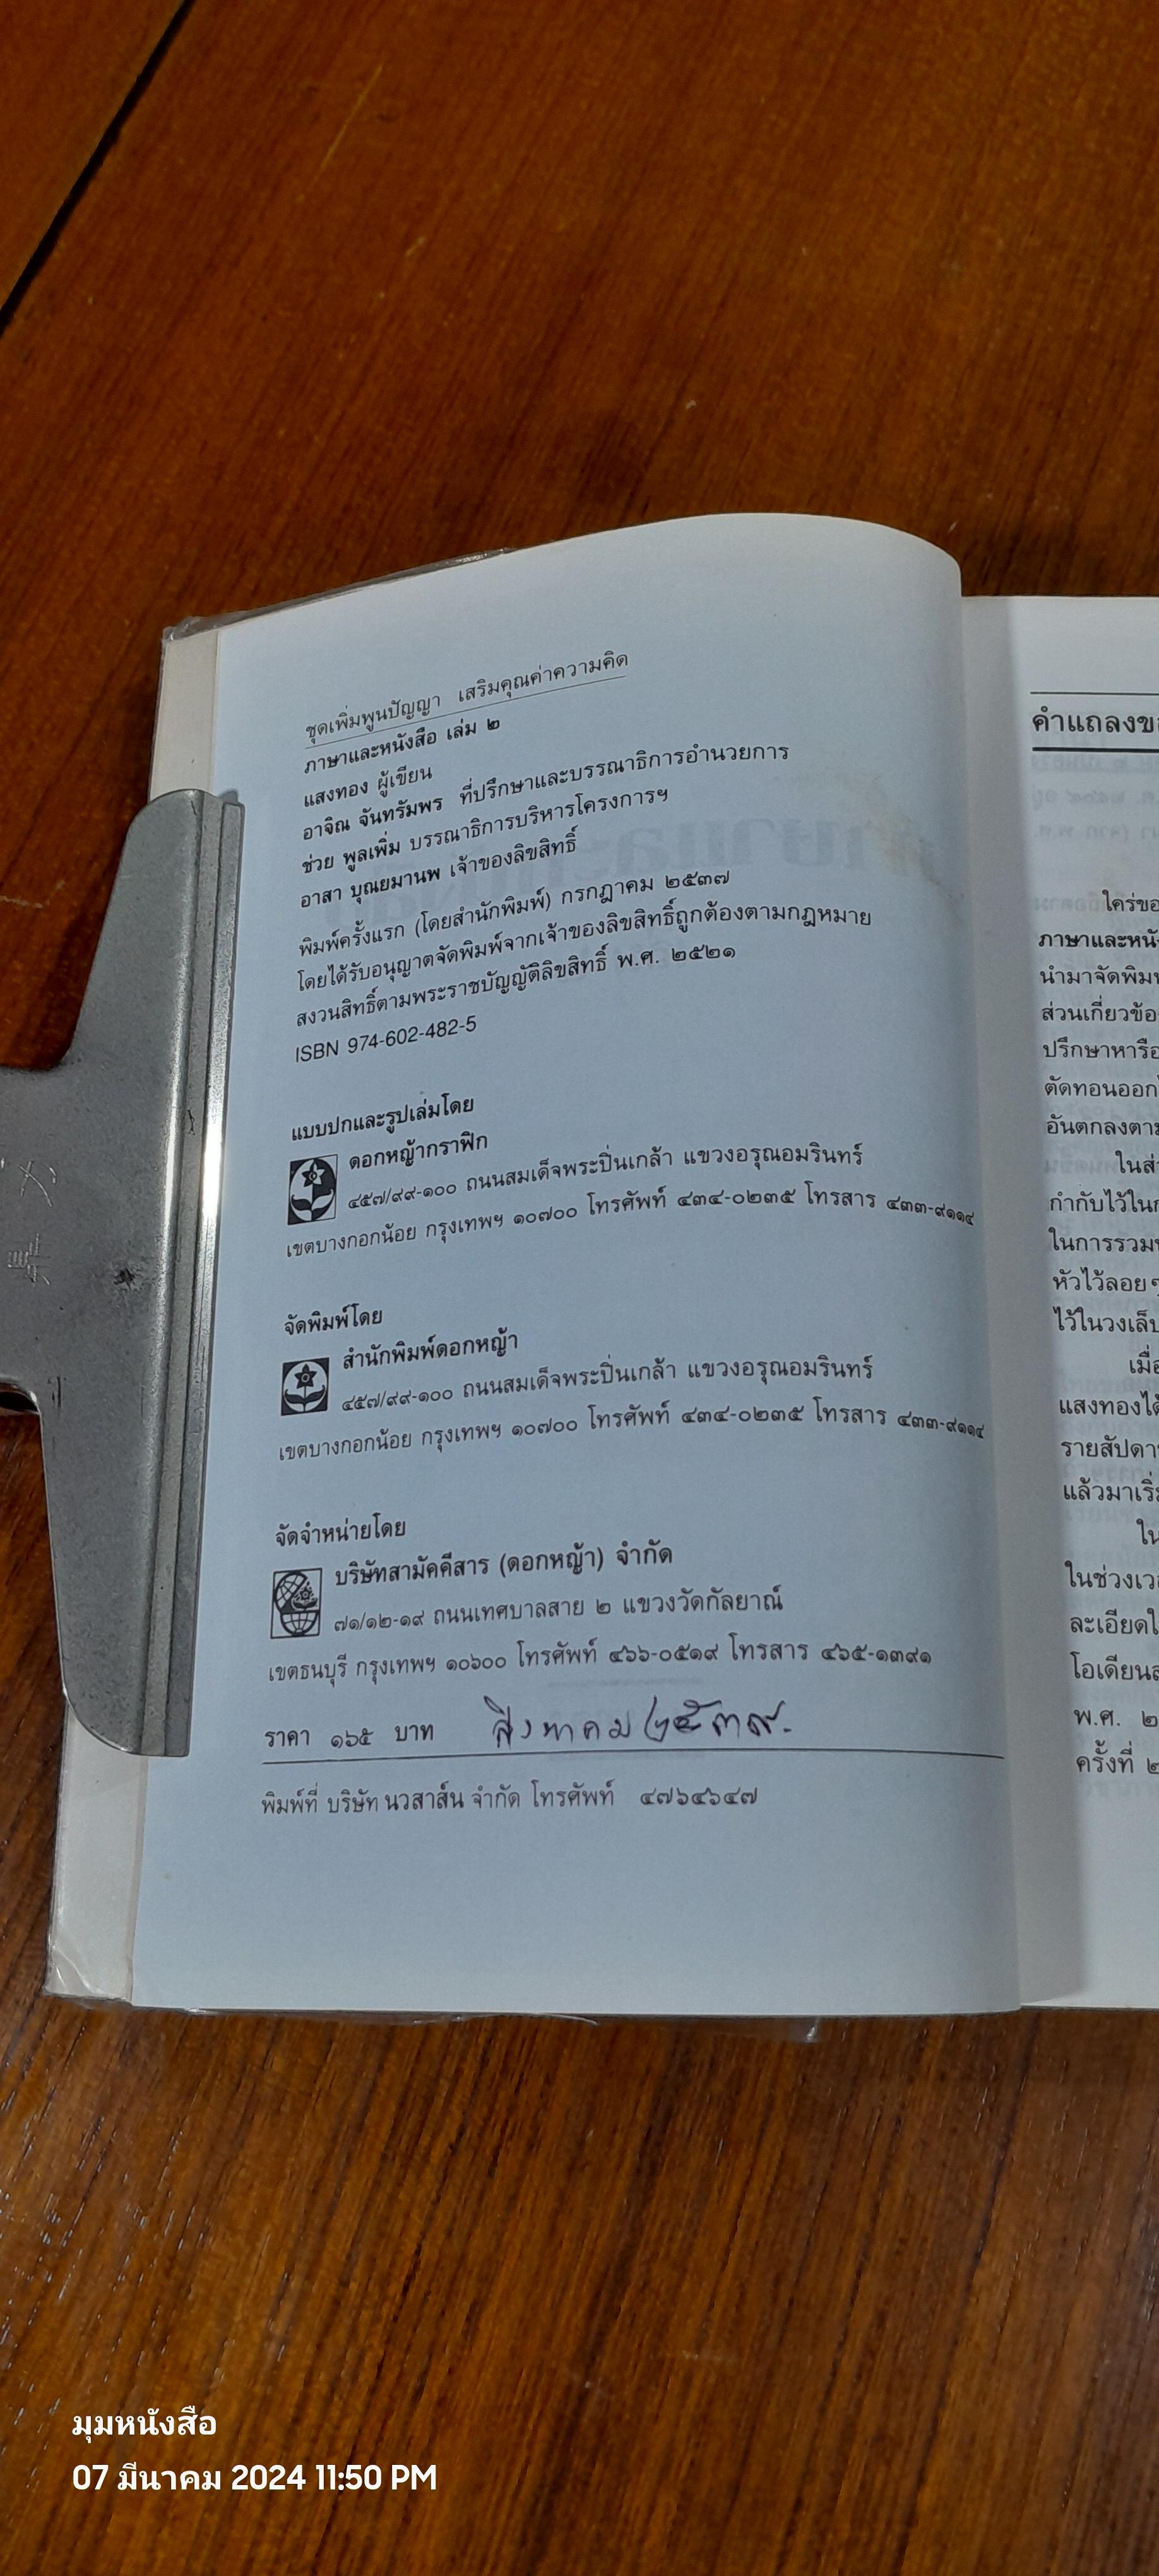 ชุดเพิ่มพูนปัญญา เสริมคุณค่าความคิด
ภาษาและหนังสือ เล่ม ๒
แสงทอง ผู้เขียน
อาจิณ จันทรัมพร ที่ปรึกษาและบรรณาธิการอำนวยการ
ช่วย พูลเพิ่ม บรรณาธิการบริหารโครงการฯ
อาสา บุณยมานพ เจ้าของลิขสิทธิ์
พิมพ์ครั้งแรก (โดยสำนักพิมพ์) กรกฎาคม ๒๕๓๗
โดยได้รับอนุญาตจัดพิมพ์จากเจ้าของลิขสิทธิ์ถูกต้องตามกฎหมาย
สงวนสิทธิ์ตามพระราชบัญญัติลิขสิทธิ์ พ.ศ. ๒๕๒๑
ISBN 974-602-482-5
แบบปกและรูปเล่มโดย
ดอกหญ้ากราฟิก
๔๕๗/๙๙-๑๐๐ ถนนสมเด็จพระปิ่นเกล้า แขวงอรุณอมรินทร์
เขตบางกอกน้อย กรุงเทพฯ ๑๐๗๐๐ โทรศัพท์ ๔๓๔-๐๒๓๕ โทรสาร ๔๓๓-๙๑๑๔
จัดพิมพ์โดย
สำนักพิมพ์ดอกหญ้า
๔๕๗/๙๙-๑๐๐ ถนนสมเด็จพระปิ่นเกล้า แขวงอรุณอมรินทร์
เขตบางกอกน้อย กรุงเทพฯ ๑๐๗๐๐ โทรศัพท์ ๔๓๔-๐๒๓๕ โทรสาร ๔๓๓-๙๑๑๔
จัดจำหน่ายโดย
บริษัทสามัคคีสาร (ดอกหญ้า) จำกัด
๗๑/๑๒-๑๙ ถนนเทศบาลสาย ๒ แขวงวัดกัลยาณ์
เขตธนบุรี กรุงเทพฯ ๑๐๖๐๐ โทรศัพท์ ๔๖๖-๐๕๑๙ โทรสาร ๔๖๕-๑๓๙๑
ราคา ๑๖๕ บาท สิงหาคม ๒๕๓๙.
พิมพ์ที่ บริษัท นวสาส์น จำกัด โทรศัพท์ ๔๗๖๔๖๔๗
คำแถลงขอ
ใคร่ขอ
ภาษาและหนัง
นำมาจัดพิมพ
ส่วนเกี่ยวข้อ
ปรึกษาหารือ
ตัดทอนออก
อันตกลงตาม
ในส่
กำกับไว้ในก
ในการรวม
หัวไว้ลอย ๆ
ไว้ในวงเล็บ
เมื่อ
แสงทองได้
รายสัปดา
แล้วมาเริ่ม
ใน
ในช่วงเว
ละเอียดใ
โอเดียน
พ.ศ. ๒
ครั้งที่ ๒
มุมหนังสือ
07 มีนาคม 2024 11:50 PM